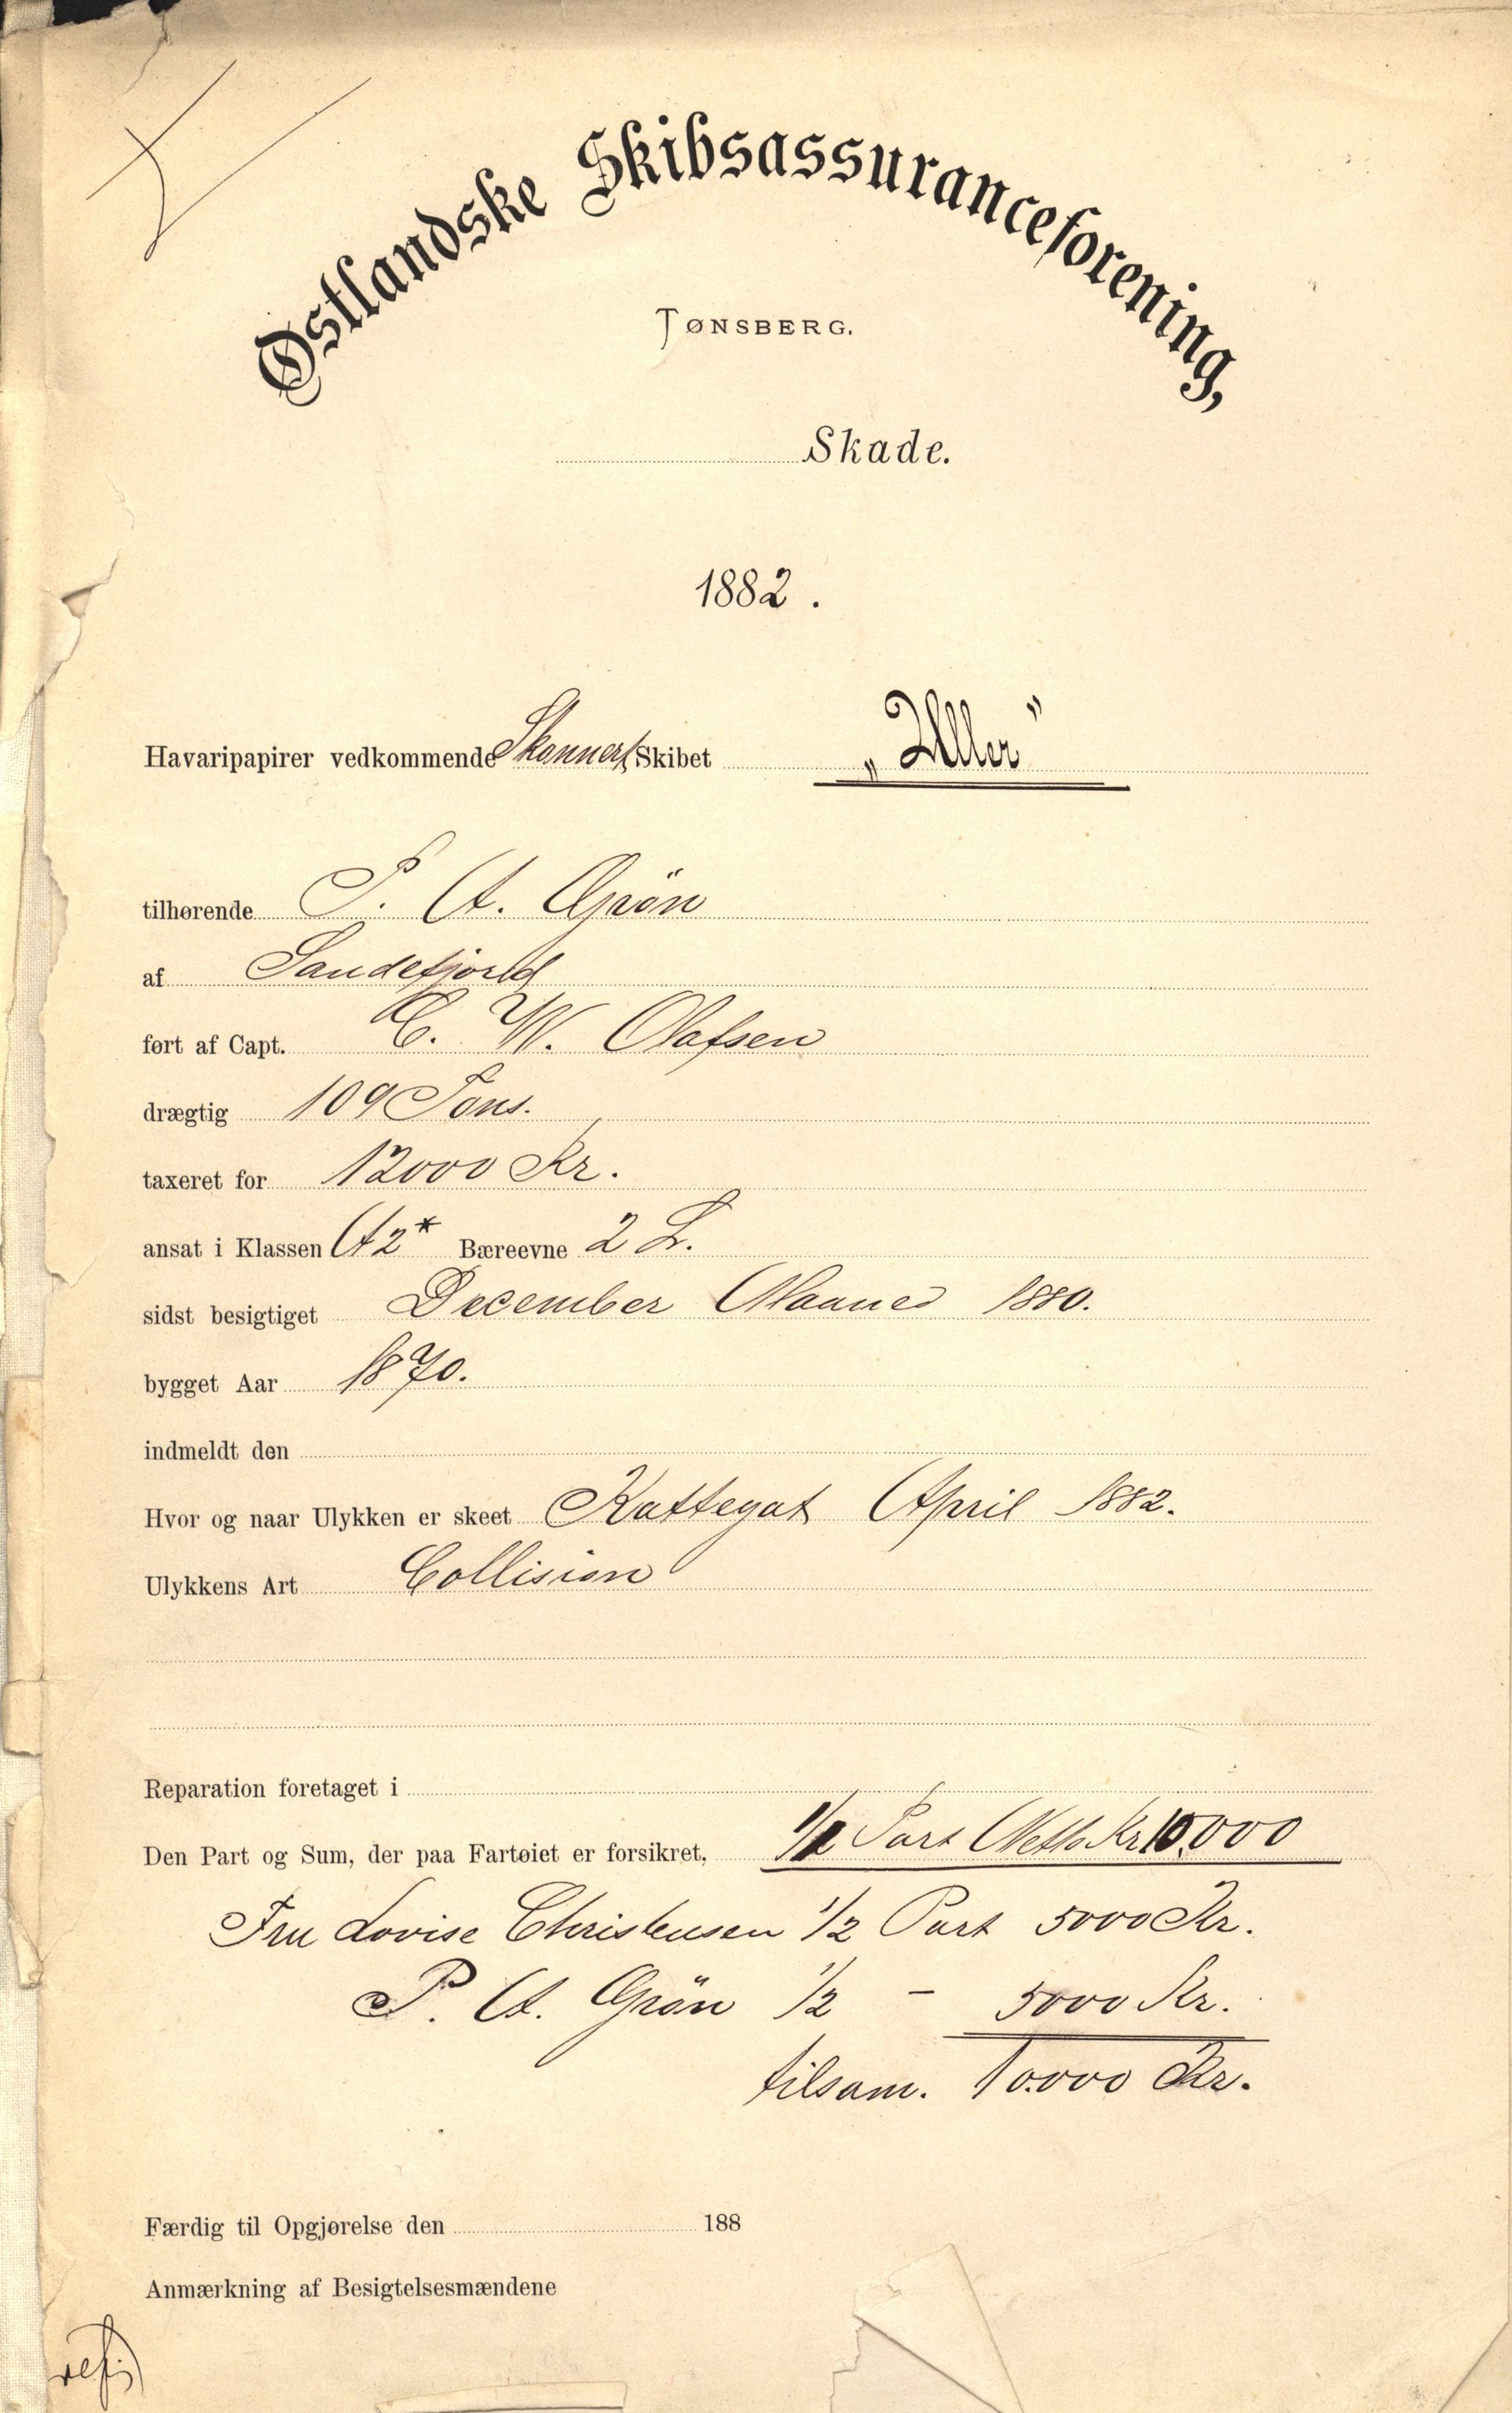 Østlandske Skibsassuranceforening,
TØNSBERG.
Skade.
1882.
Havaripapirer vedkommende Skonnert Skibet „Uller”
tilhørende P. A. Grön
af Sandefjord
ført af Capt. C. W. Olafsen
drægtig 109 Tons.
taxeret for 12000 Kr.
ansat i Klassen A2* Bæreevne 2 L.
sidst besigtiget December Maaned 1880.
bygget Aar 1870.
indmeldt den
Hvor og naar Ulykken er skeet Kattegat April 1882.
Ulykkens Art Collision
Reparation foretaget i
Den Part og Sum, der paa Fartøiet er forsikret, 1/1 Part Netto Kr 10.000
Fru Lovise Christensen 1/2 Part 5000 Kr.
P. A. Grön 1/2 - 5000 Kr.
tilsam. 10.000 Kr.
Færdig til Opgjørelse den 188
Anmærkning af Besigtelsesmændene